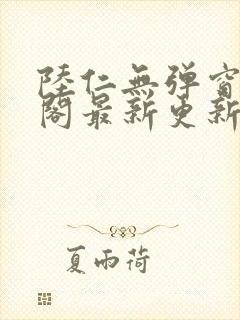 陸仁無弹窗
閣最新更新
夏雨荷